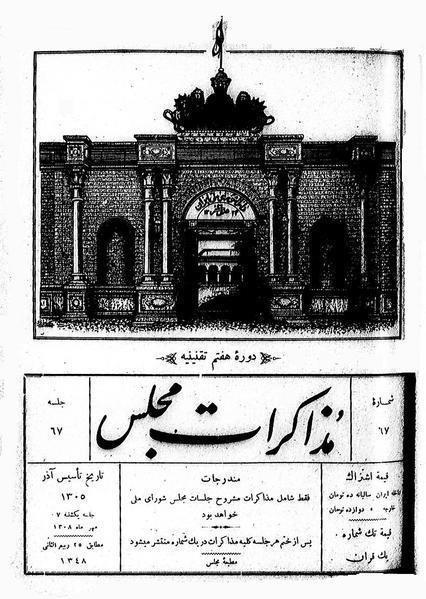 دورهٔ هفتم تقنینیه
شمارهٔ
۶۷
مذاکرات مجلس
جلسه
۶۷
قیمة اشتراك
داخله ایران سالیانه ده تومان
خارجه دوازده تومان
قیمة تك شماره
یك قران
مندرجات
فقط شامل مذاکرات مشروح جلسات مجلس شورای ملی
خواهد بود
پس از ختم هر جلسه کلیه مذاکرات در یك شماره منتشر میشود
مطبعهٔ مجلس
تاریخ تأسیس آذر
۱۳۰۵
جلسه یکشنبه ۷
مهر ماه ۱۳۰۸
مطابق ۲۵ ربیع الثانی
۱۳۴۸